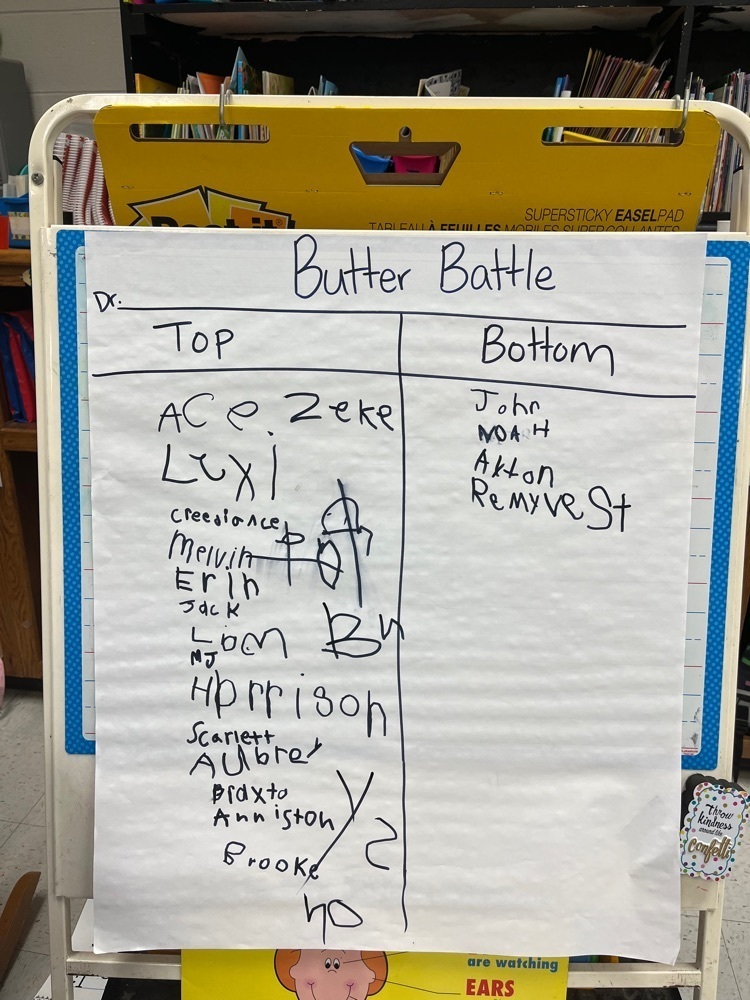 Post-it
SUPERSTICKY EASEL PAD
TABLEAU À FEUILLES MOBILES SUPER COLLANTES
Butter Battle
Dr.
Top
Bottom
Ace. Zeke
Lexi
creediance
Melvin
Erin
Jack
Liam
MJ
Harrison
Scarlett
Aubrey
Braxto
Anniston
Brooke
John
NOAH
Akton
Remy veSt
Throw
kindness
around like
confetti
are watching
EARS